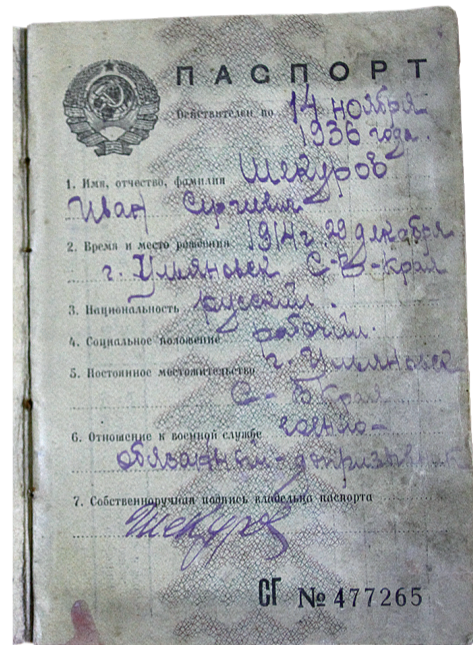 ПАСПОРТ
Действителен по 14 ноября
1936 года.
1. Имя, отчество, фамилия Шекуров
Иван Сергиевич
2. Время и место рождения 1914 г 29 декабря
г. Ульяновск С-В-Края
3. Национальность русский.
4. Социальное положение рабочий.
5. Постоянное местожительство г. Ульяновск
С-В Края
6. Отношение к военной службе военно-
обязанный-допризывник
7. Собственноручная подпись владельца паспорта
Шекуров
СГ № 477265